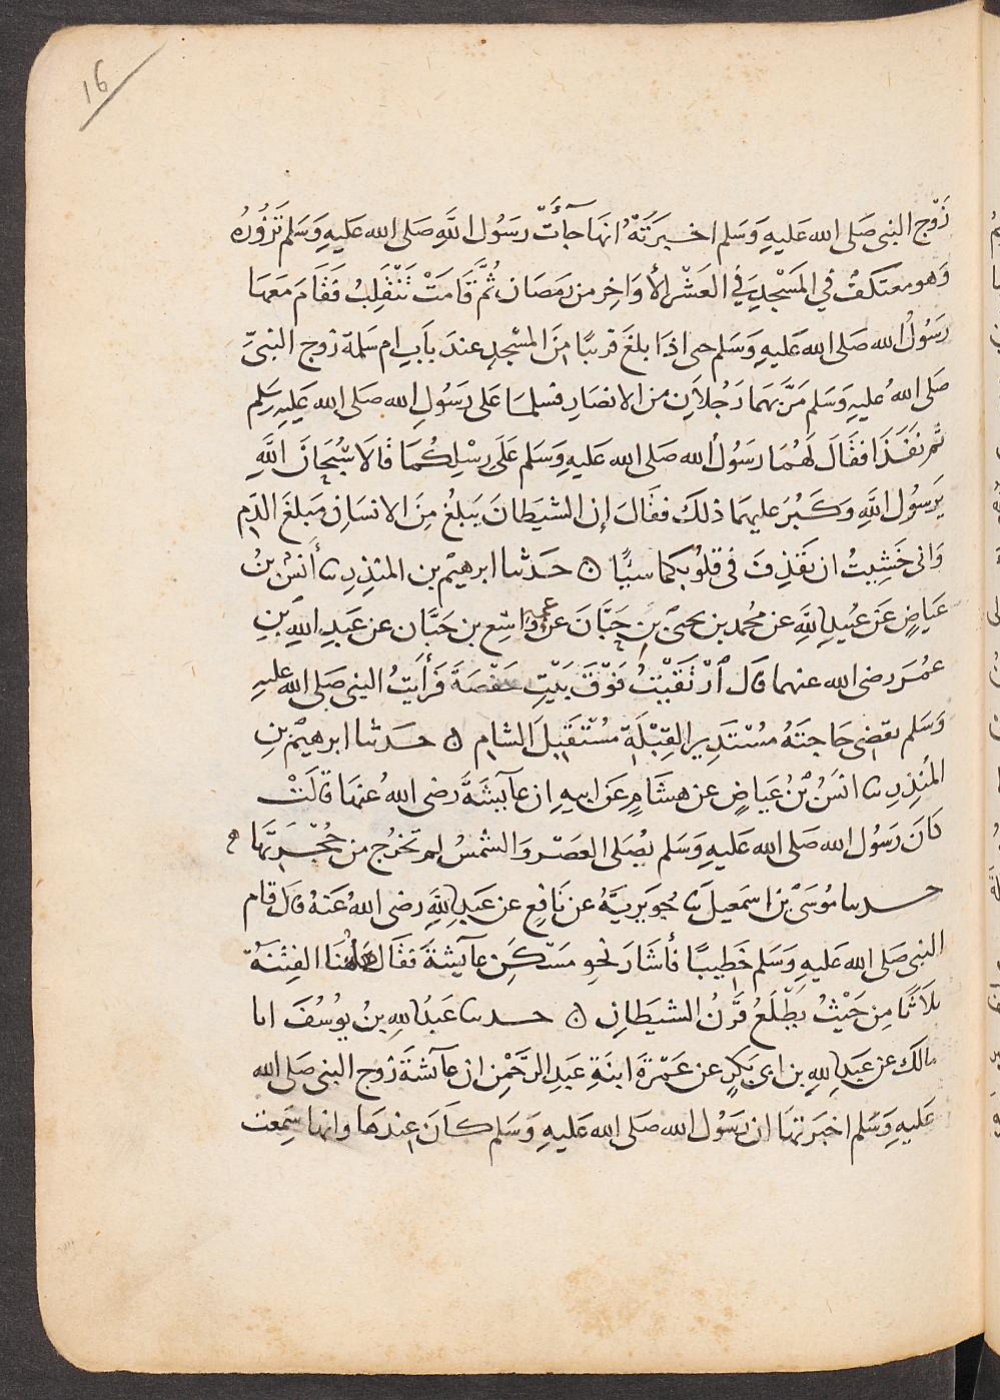 16
زَوْج النبى صَلى الله عَليهِ وَسَلم اخبرَتهُ انهَا جَآءَتْ رسَوُل اللَّهِ صَلى الله عَليهِ وَسَلم تَزُوُرهُ
وَهو معتكفُ في المَسْجدِ في العَشْر الأوَاخِر من رَمَضان ثُمَّ قَامَتْ تَنْقَلِبُ فَقَامَ مَعَهَا
رسَوُلُ الله صَلى الله عَليهِ وَسَلم حى اذَا بلغَ قريبًا مِنَ المسْجدِ عندَ بَابِ ام سَلمة زوج النبىّ
صَلى اللهُ عليهِ وَسَلم مَرَّ بهمَا رَجُلاَنِ من الانصَارِ فسلمَا عَلى رَسُولِ الله صَلى الله عَليهِ وسَلم
ثُم نفَذَا فقَالَ لَهُمَا رسَوُلُ الله صَلى الله عَليهِ وَسَلم عَلَى رسْلِكُمَا قَالَا سُبْحَانَ اللَّهِ
يَرسوُل اللَّهِ وَكَبُرَ عليهمَا ذلكَ فقَالَ إن الشيَطانَ يَبلغُ مِنَ الانسَانِ مَبلغَ الدَم
وَانى خَشِيتُ ان يَقذِفَ فى قلوُبكمَا سيًّا ه حَدثنا ابرهيْم بن المنذِر سا أنسُ بنُ
عيَاضٍ عَن عُبيدِاللَّهِ عن محُمد بن يحيىَ بنِ حَبَّانَ عن عمهِ وَاسِع بن حَبَّان عن عَبدِ اللهِ بنِ
عمُرَ رضى الله عنهما قَال ارْتقَيْتُ فَوْقَ بَيْتِ حَفْصَةَ فَرَأَيتُ النبى صَلى الله عليهِ
وَسَلم يقضِى حَاجتَهُ مسُتَدبِر القِبْلَةِ مسُتقبِلَ الشام ه حَدثنا ابرهيم بنِ
المُنذِر سا انسَُ بْنُ عيَاضٍ عن هشَامٍ عَن ابيهِ ان عآيشَةَ رضى اللهُ عنهَا قالَتْ
كَانَ رَسُول الله صَلى الله عَليهِ وَسَلم يصُلى العَصْر وَالشمسُ لم تخرُج من حُجْرَتهَا ه
حدسا موُسَى بْن اسمَعيل سا جُوَيريَةُ عن نَافِعٍ عن عَبدِ اللَّهِ رضى اللهُ عَنهُ قالَ قام
النبى صَلى الله عَليهِ وَسَلم خَطيبًا فأشَارَ نحوِ مسَكَنِ عآيشةَ فقَالَ هَاهُنَا الفِتنَةُ
ثلاَثًا مِن حَيْثُ يَطْلَعُ قَرْنُ الشيَطَانِ ه حدسا عَبدُ اللهِ بنُ يوُسُفَ انا
مالك عن عَبدِ اللهِ بن ابى بَكرٍ عن عَمْرَةَ ابنَةِ عَبدِ الرَّحْمنِ ان عآئشةَ زوج النبى صَلى الله
عَليهِ وَسَلم اخبَرتهَا ان رَسَوُل الله صَلى الله عَليهِ وَسَلم كَانَ عِندَهَا وانها سَمِعت